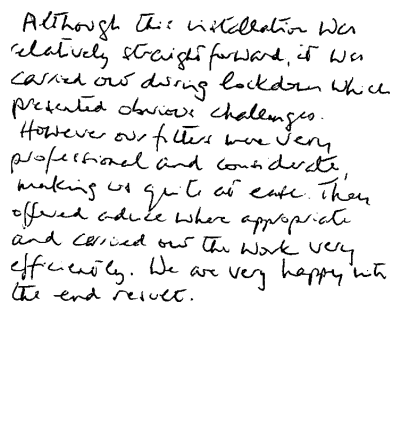 Although this installation was
relatively straightforward, it was
carried out during lockdown which
presented obvious challenges.
However our fitters were very
professional and considerate,
making us quite at ease. They
offered advice where appropriate
and carried out the work very
efficiently. We are very happy with
the end result.